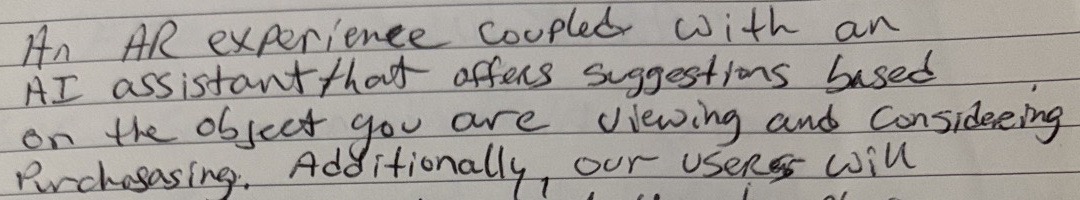 An AR experience coupled with an
AI assistant that offers suggestions based
on the object you are viewing and considering
Purchasasing. Additionally, our users will